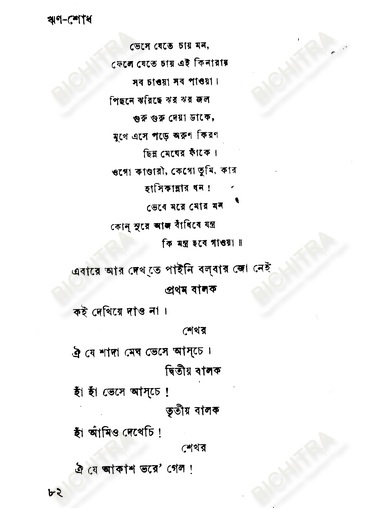 ঋণ-শোধ
ভেসে যেতে চায় মন,
ফেলে যেতে চায় এই কিনারায়
সব চাওয়া সব পাওয়া।
পিছনে ঝরিছে ঝর ঝর জল
গুরু গুরু দেয়া ডাকে,
মুখে এসে পড়ে অরুণ কিরণ
ছিন্ন মেঘের ফাঁকে।
ওগো কাণ্ডারী, কেগো তুমি, কার
হাসিকান্নার ধন!
ভেবে মরে মোর মন
কোন্ সুরে আজ বাঁধিবে যন্ত্র
কি মন্ত্র হবে গাওয়া॥
এবারে আর দেখ্‌তে পাইনি বল্‌বার জো নেই
প্রথম বালক
কই দেখিয়ে দাও না।
শেখর
ঐ যে শাদা মেঘ ভেসে আস্‌চে।
দ্বিতীয় বালক
হাঁ হাঁ ভেসে আস্‌চে!
তৃতীয় বালক
হাঁ আমিও দেখেচি!
শেখর
ঐ যে আকাশ ভরে' গেল!
৮২
BICHITRA